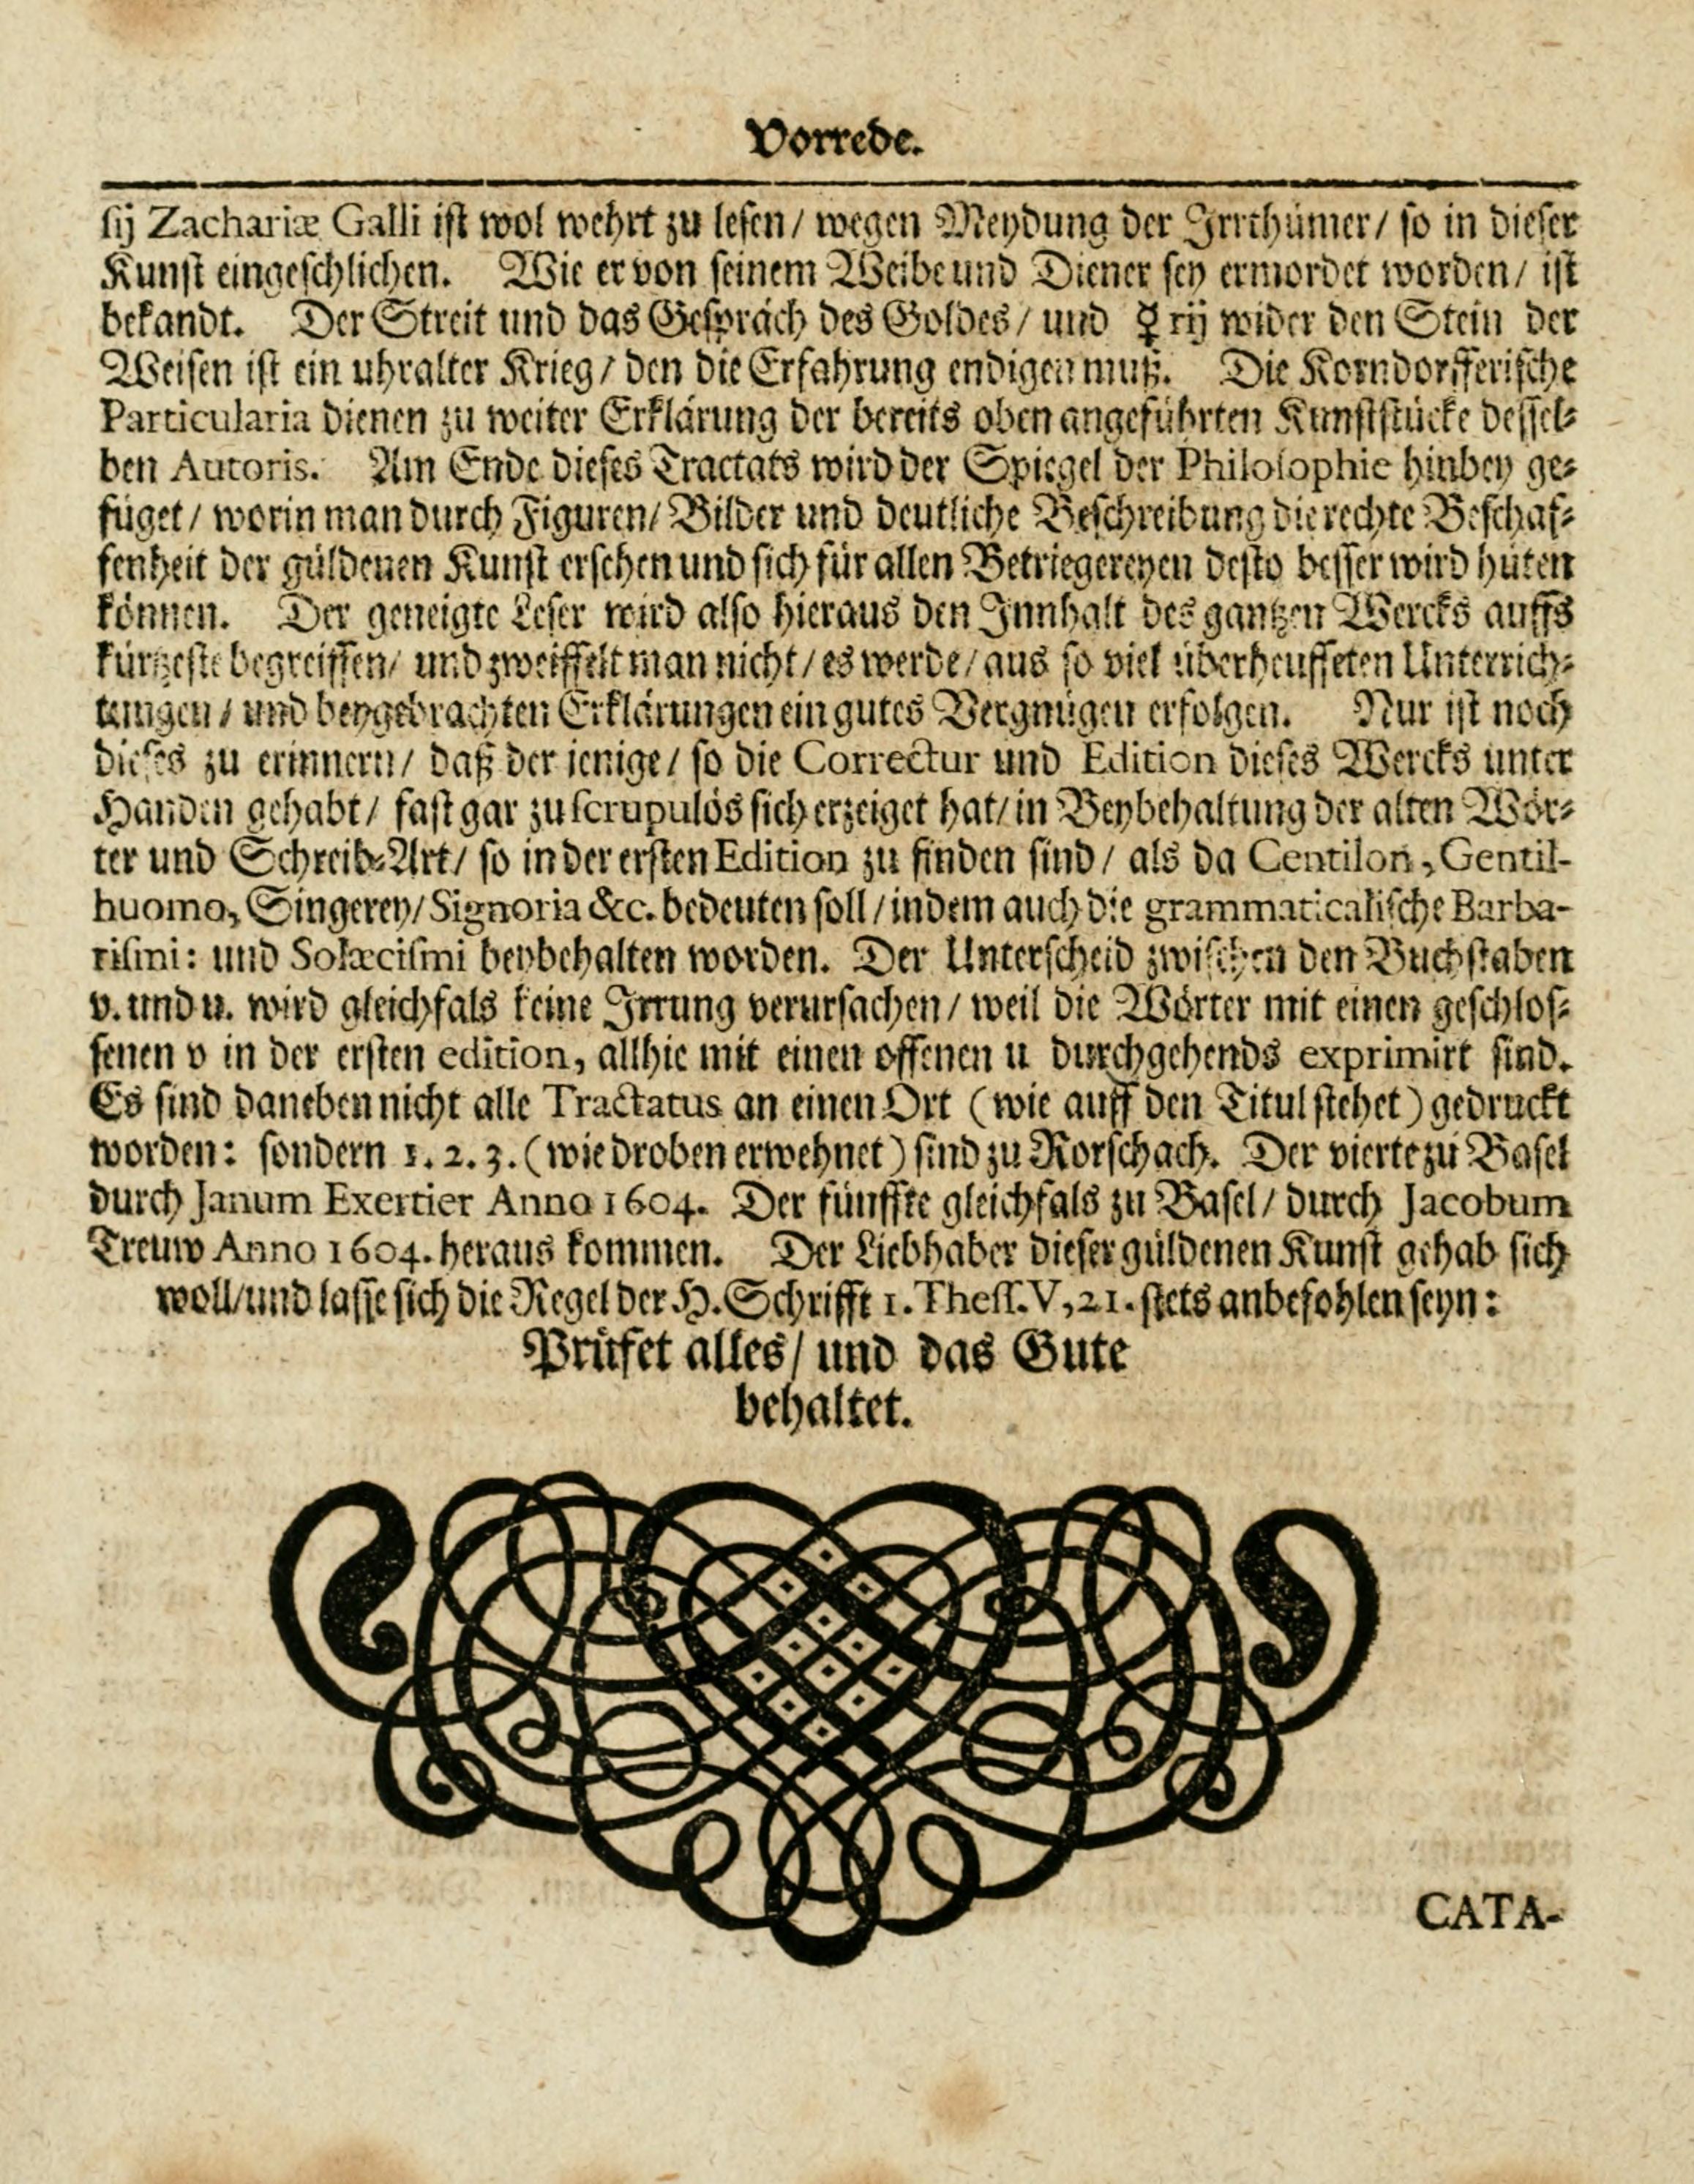 Vorrede.
sij Zachariæ Galli ist wol wehrt zu lesen/ wegen Meydung der Irrthümer/ so in dieser
Kunst eingeschlichen. Wie er von seinem Weibe und Diener sey ermordet worden/ ist
bekandt. Der Streit und das Gespräch des Goldes/ und ☿rij wider den Stein der
Weisen ist ein uhralter Krieg/ den die Erfahrung endigen muß. Die Korndorfferische
Particularia dienen zu weiter Erklärung der bereits oben angeführten Kunststücke dessel-
ben Autoris. Am Ende dieses Tractats wird der Spiegel der Philosophie hinbey ge-
füget/ worin man durch Figuren/ Bilder und deutliche Beschreibung die rechte Beschaf-
fenheit der güldenen Kunst ersehen und sich für allen Betriegereyen desto besser wird hüten
können. Der geneigte Leser wird also hieraus den Innhalt des gantzen Wercks auffs
kürtzeste begreiffen/ und zweiffelt man nicht/ es werde/ aus so viel überheuffeten Unterrich-
tungen/ und beygebrachten Erklärungen ein gutes Vergnügen erfolgen. Nur ist noch
dieses zu erinnern/ daß der jenige/ so die Correctur und Edition dieses Wercks unter
Handen gehabt/ fast gar zu scrupulös sich erzeiget hat/ in Beybehaltung der alten Wör-
ter und Schreib-Art/ so in der ersten Edition zu finden sind/ als da Centilon, Gentil-
huomo, Singerey/ Signoria &c. bedeuten soll/ indem auch die grammaticalische Barba-
rismi: und Solæcismi beybehalten worden. Der Unterscheid zwischen den Buchstaben
v. und u. wird gleichfals keine Irrung verursachen/ weil die Wörter mit einen geschlos-
senen v in der ersten edition, allhie mit einen offenen u durchgehends exprimirt sind.
Es sind daneben nicht alle Tractatus an einen Ort (wie auff den Titul stehet) gedruckt
worden: sondern 1. 2. 3. (wie droben erwehnet) sind zu Rorschach. Der vierte zu Basel
durch Janum Exertier Anno 1604. Der fünffte gleichfals zu Basel/ durch Jacobum
Treuw Anno 1604. heraus kommen. Der Liebhaber dieser güldenen Kunst gehab sich
woll/ und lasse sich die Regel der H. Schrifft 1. Thess. V, 21. stets anbefohlen seyn:
Prüfet alles/ und das Gute
behaltet.
CATA-